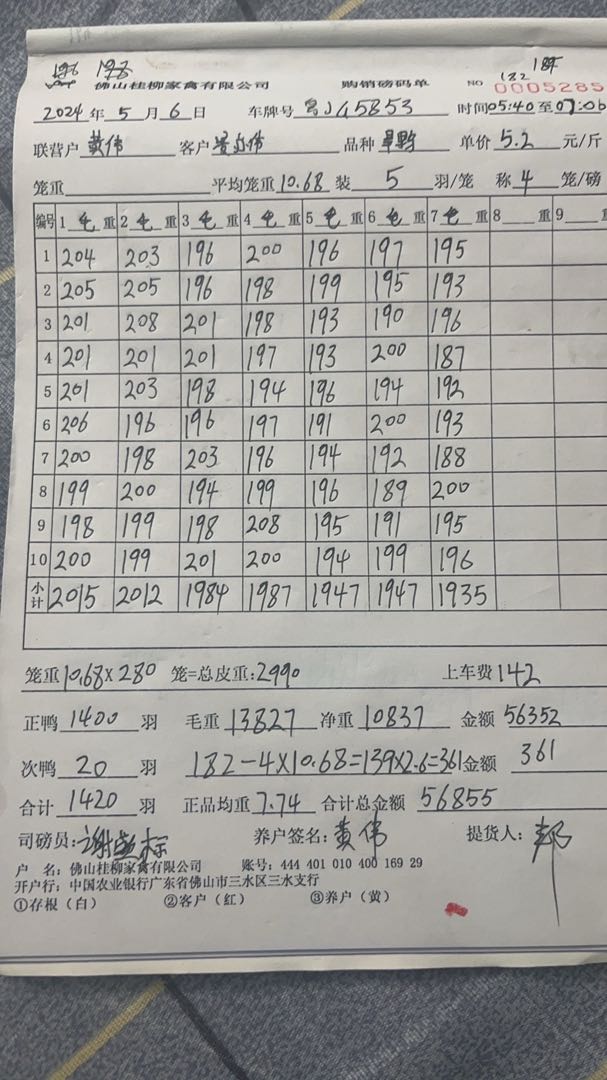 196 198 182 184
佛山桂柳家禽有限公司 购销磅码单 NO 0005285
2024年5月6日 车牌号 粤J G5853 时间05:40至07:06
联营户 黄伟 客户 品种 旱鸭 单价5.2元/斤
笼重 平均笼重10.68 装5羽/笼 称4笼/磅
编号 1毛重 2毛重 3毛重 4毛重 5毛重 6毛重 7毛重 8 重 9
1 204 203 196 200 196 197 195
2 205 205 196 198 199 195 193
3 201 208 201 198 193 190 196
4 201 201 201 197 193 200 187
5 201 203 198 194 196 194 192
6 206 196 196 197 191 200 193
7 200 198 203 196 194 192 188
8 199 200 194 199 196 189 200
9 198 199 198 208 195 191 195
10 200 199 201 200 194 199 196
小计 2015 2012 1984 1987 1947 1947 1935
笼重10.68×280笼=总皮重:2990 上车费142
正鸭1400羽 毛重13827 净重10837 金额56352
次鸭20羽 182-4×10.68=139×2.6=361 金额361
合计1420羽 正品均重7.74 合计总金额56855
司磅员: 养户签名:黄伟 提货人:
户 名:佛山桂柳家禽有限公司 账号:444 401 010 400 169 29
开户行:中国农业银行广东省佛山市三水区三水支行
①存根(白) ②客户(红) ③养户(黄)